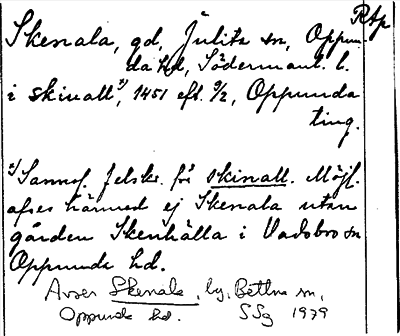 Skenala, gd, Julita sn, Oppun-
da hd, Södermanl. l.
i skivall¹⁾, 1451 eft. 9/2, Oppunda
ting.
¹⁾ Sannol. felskr. för skinall. Möjl.
afses härmed ej Skenala utan
gården Skenhälla i Vadsbro sn
Oppunda hd.
Avser Skenala, by, Bettna sn,
Oppunda hd. SSg 1979